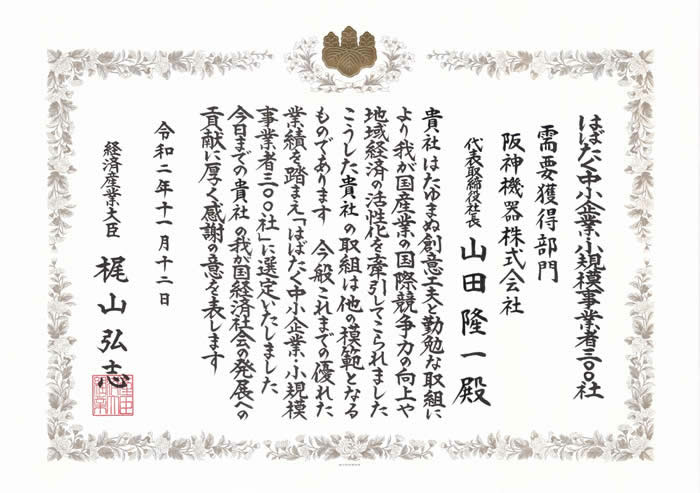 はばたく中小企業・小規模事業者三〇〇社
需要獲得部門
阪神機器株式会社
代表取締役社長 山田隆一殿
貴社はたゆまぬ創意工夫と勤勉な取組に
より我が国産業の国際競争力の向上や
地域経済の活性化を牽引してこられました
こうした貴社の取組は他の模範となる
ものであります 今般これまでの優れた
業績を踏まえ「はばたく中小企業・小規模
事業者三〇〇社」に選定いたしました
今日までの貴社の我が国経済社会の発展への
貢献に厚く感謝の意を表します
令和二年十一月十二日
経済産業大臣 梶山弘志